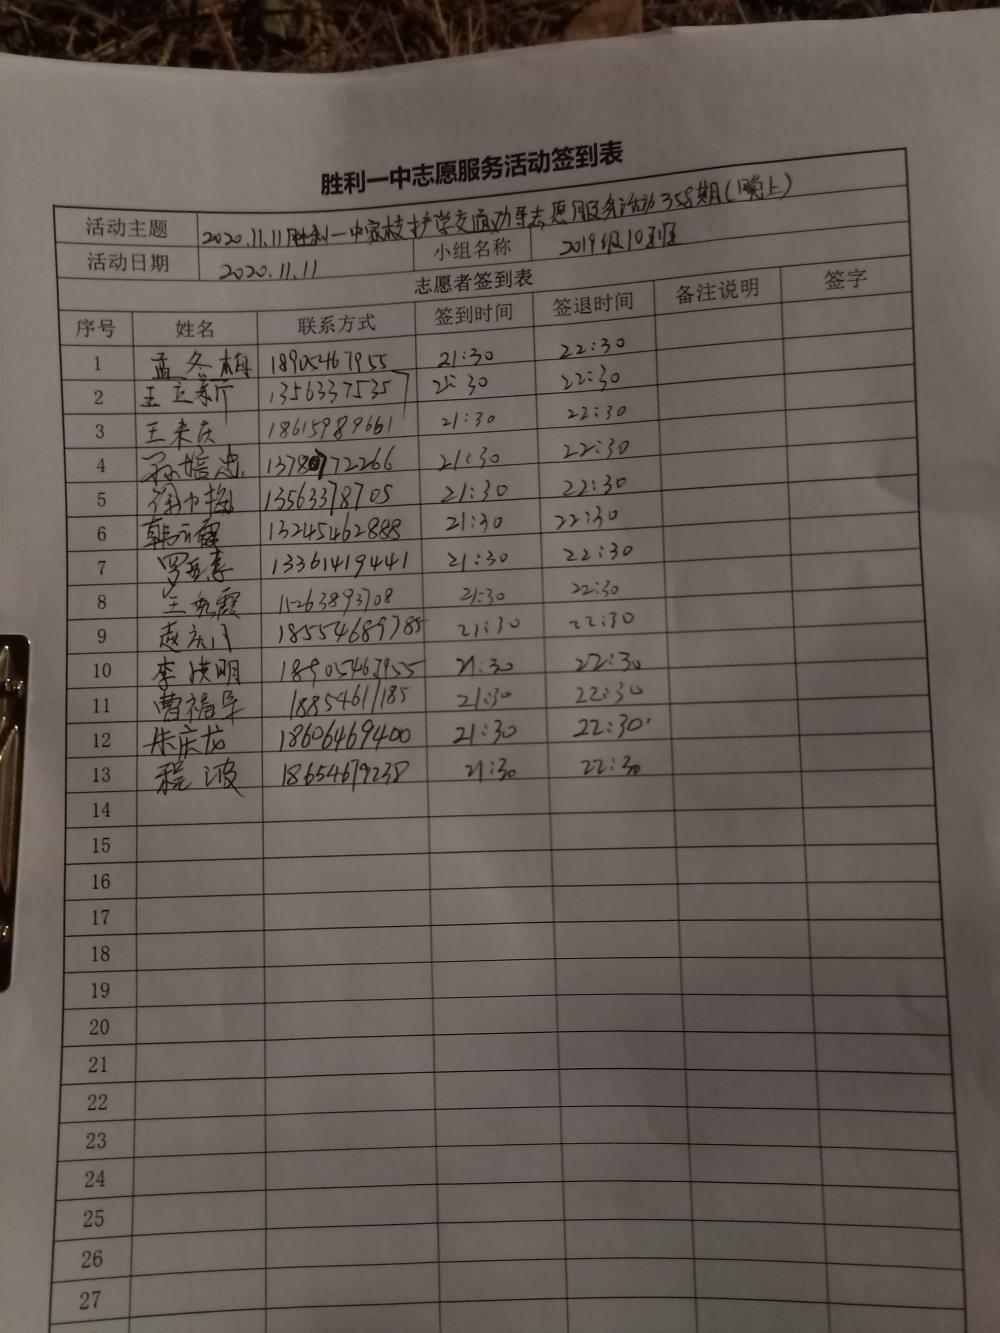 胜利一中志愿服务活动签到表
活动主题 2020.11.11胜利一中家校护学交通劝导志愿服务活动358期(晚上)
活动日期 2020.11.11 小组名称 2019级10班
志愿者签到表
序号 姓名 联系方式 签到时间 签退时间 备注说明 签字
1 孟冬梅 18905467955 21:30 22:30
2 1356337535 21:30 22:30
3 王来庆 18615989661 21:30 22:30
4 772266 21:30 22:30
5 13563378705 21:30 22:30
6 13245462888 21:30 22:30
7 13361419441 21:30 22:30
8 王 霞 15263893708 21:30 22:30
9 赵庆门 18554689785 21:30 22:30
10 李洪明 18905467955 21:30 22:30
11 曹福军 18854611185 21:30 22:30
12 朱庆龙 18606469400 21:30 22:30
13 程波 18654679238 21:30 22:30
14
15
16
17
18
19
20
21
22
23
24
25
26
27